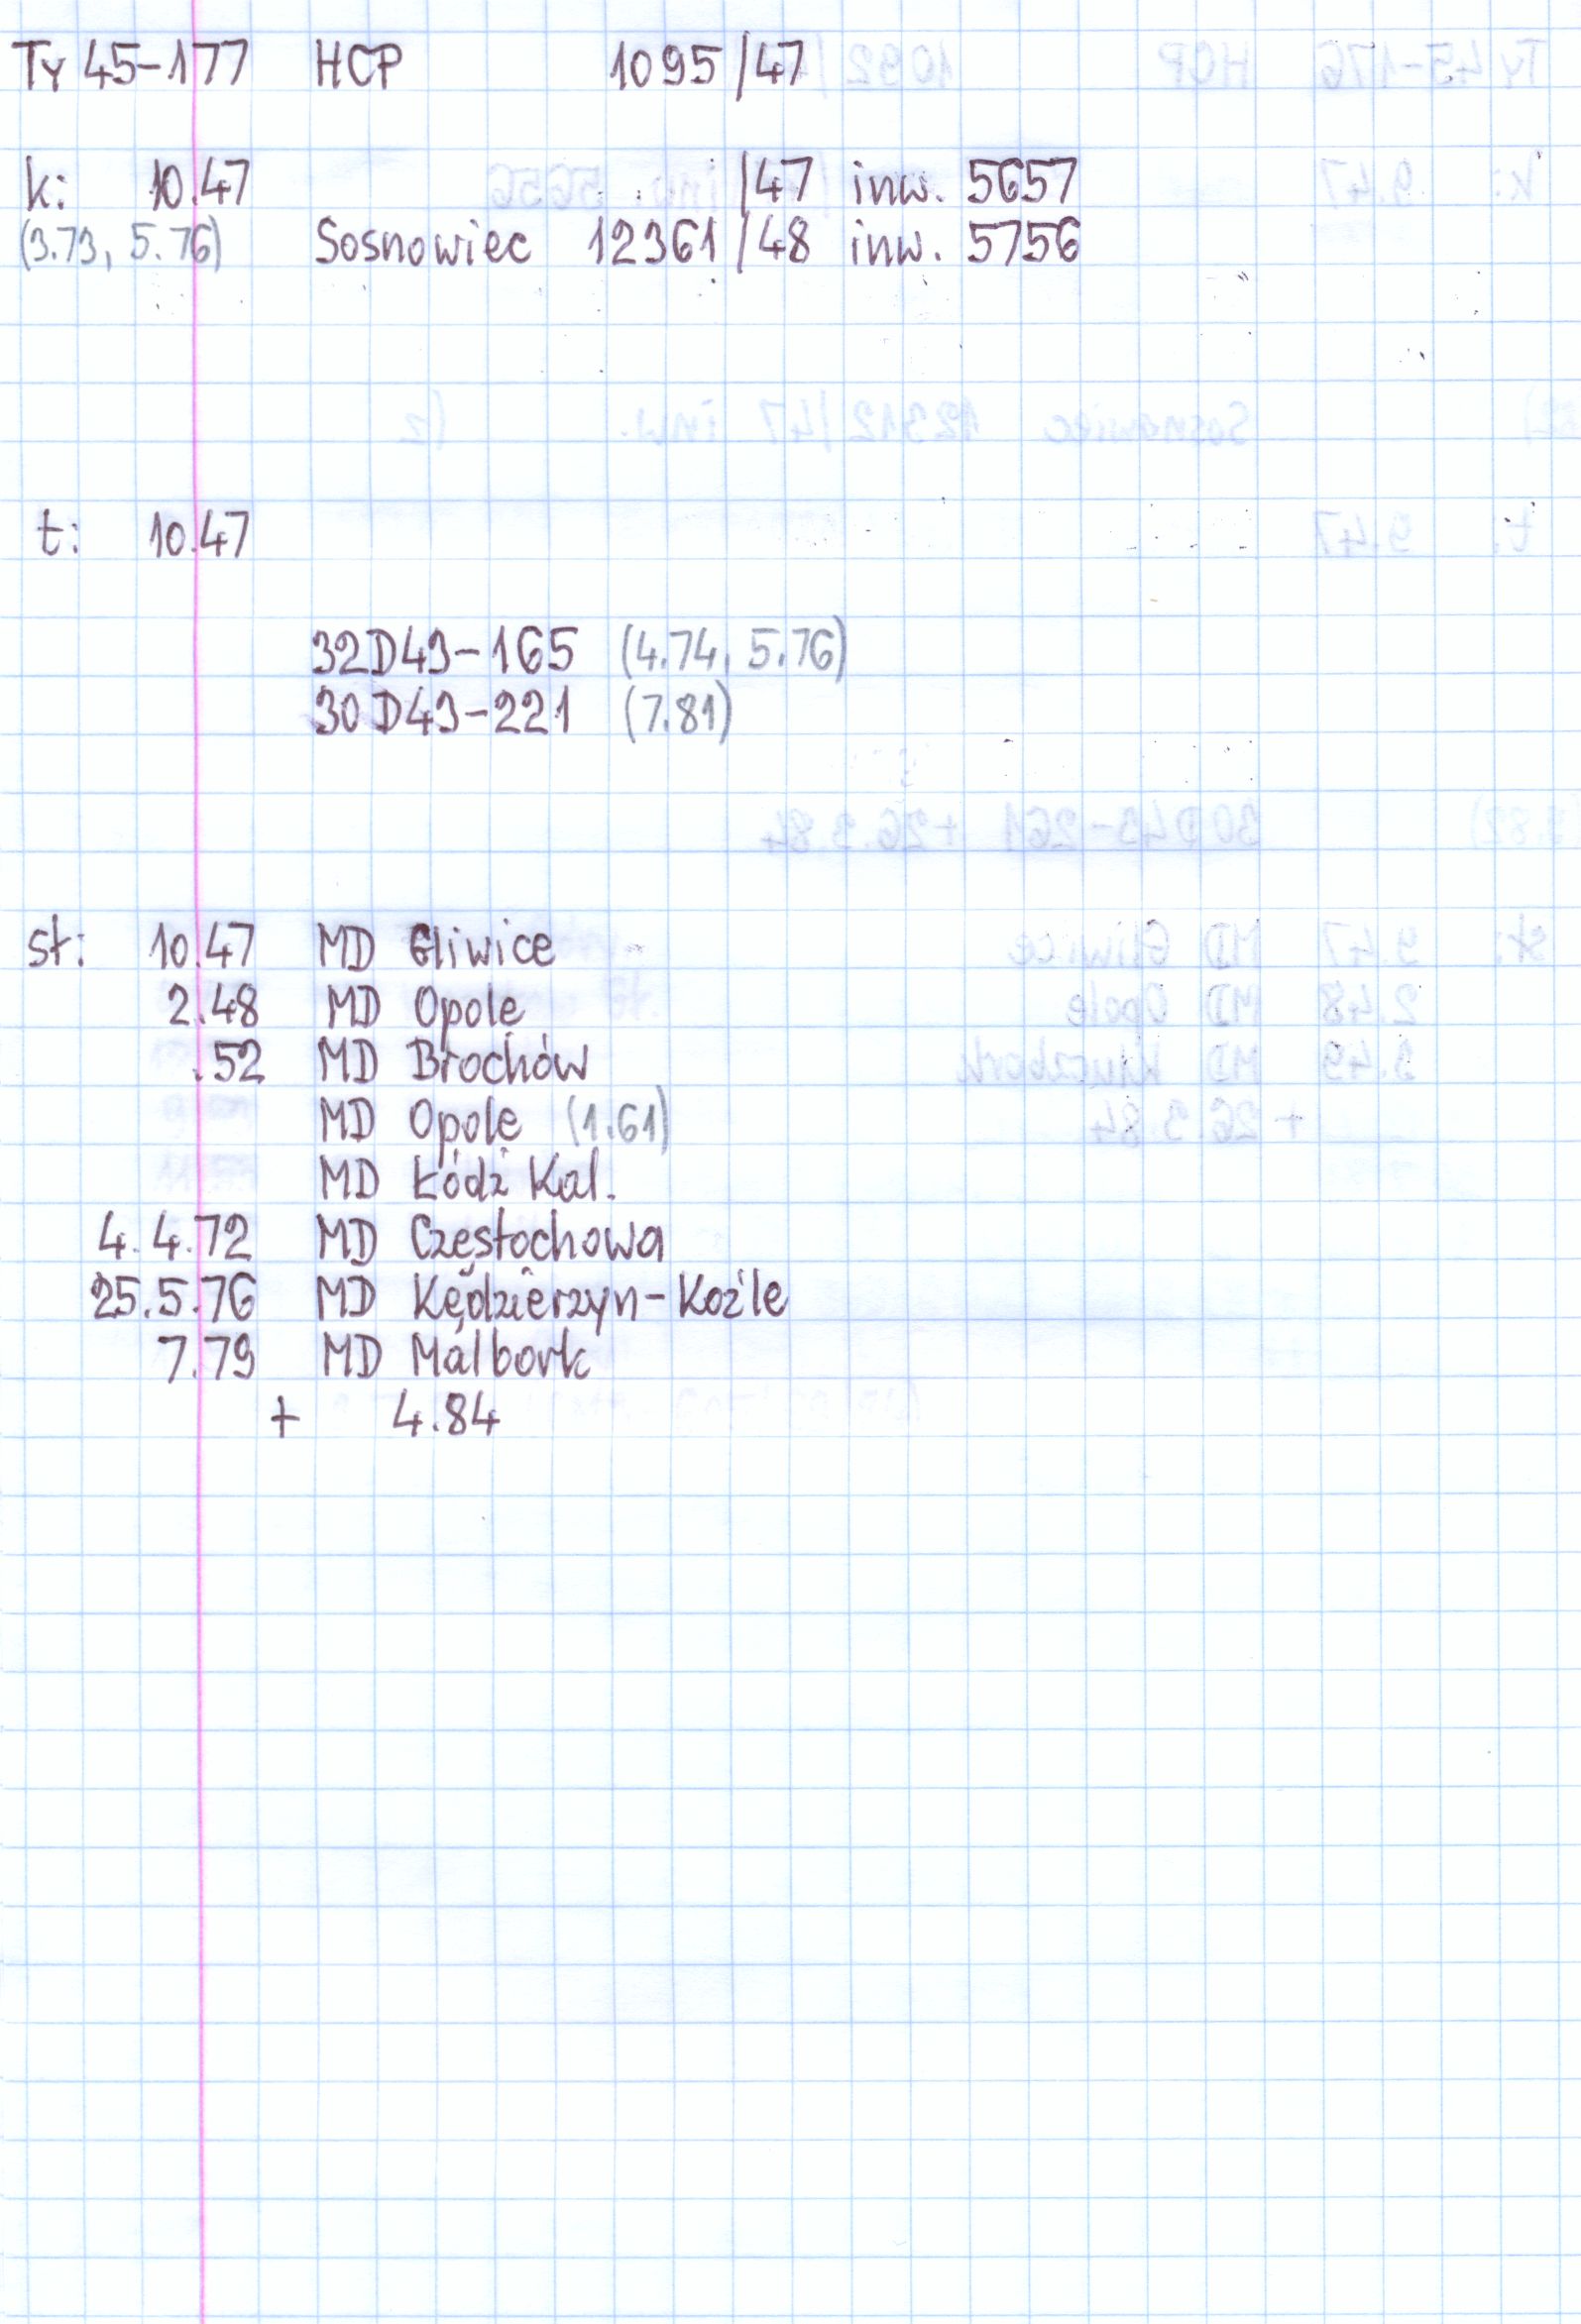 Ty 45-177 HCP 1095/47
k: 10.47 /47 inw. 5657
(3.73, 5.76) Sosnowiec 12361/48 inw. 5756
t: 10.47
32D43-165 (4.74, 5.76)
30D43-221 (7.81)
st: 10.47 MD Gliwice
2.48 MD Opole
.52 MD Brochów
MD Opole (1.61)
MD Łódź Kal.
4.4.72 MD Częstochowa
25.5.76 MD Kędzierzyn-Koźle
7.79 MD Malbork
+ 4.84